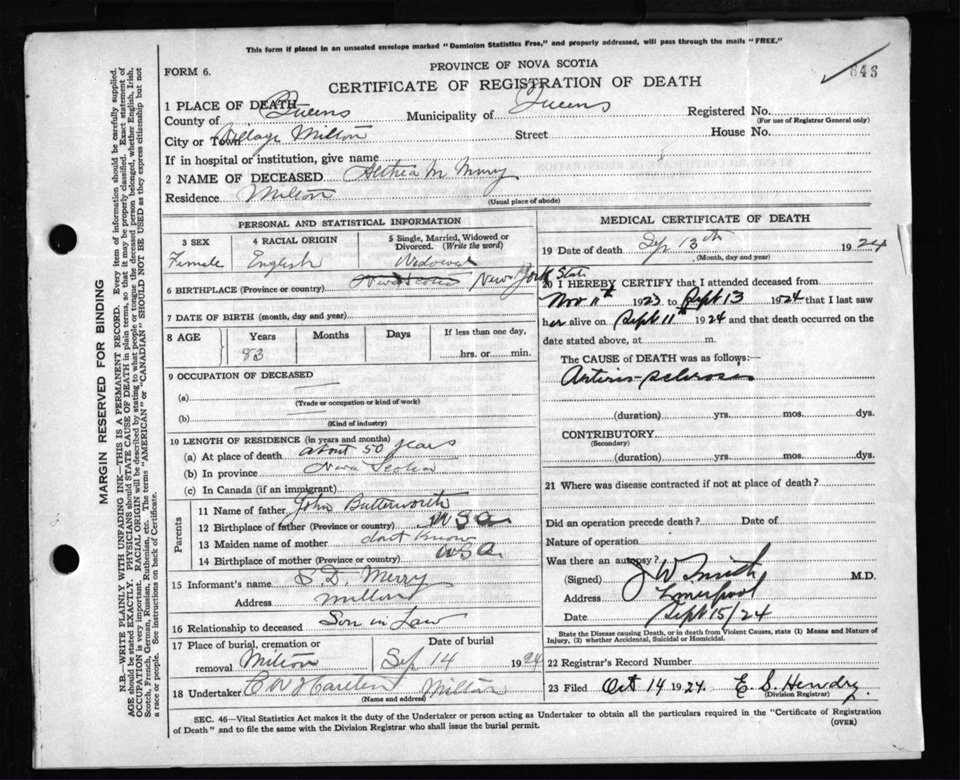 This form if placed in an unsealed envelope marked "Dominion Statistics Free," and properly addressed, will pass through the mails "FREE."
FORM 6.
PROVINCE OF NOVA SCOTIA
643
CERTIFICATE OF REGISTRATION OF DEATH
1 PLACE OF DEATH
County of Queens Municipality of Queens Registered No.
(For use of Registrar General only)
City or Town Village Milton Street House No.
If in hospital or institution, give name
2 NAME OF DECEASED Althea M Murry
Residence Milton
(Usual place of abode)
PERSONAL AND STATISTICAL INFORMATION
3 SEX
Female
4 RACIAL ORIGIN
English
5 Single, Married, Widowed or Divorced. (Write the word)
Widowed
6 BIRTHPLACE (Province or country) Nova Scotia New York State
7 DATE OF BIRTH (month, day and year)
8 AGE Years Months Days If less than one day,
83 hrs. or min.
9 OCCUPATION OF DECEASED
(a)
(Trade or occupation or kind of work)
(b)
(Kind of industry)
10 LENGTH OF RESIDENCE (in years and months)
(a) At place of death about 50 years
(b) In province Nova Scotia
(c) In Canada (if an immigrant)
Parents
11 Name of father John Butterworth
12 Birthplace of father (Province or country) USA
13 Maiden name of mother dont know
14 Birthplace of mother (Province or country) USA
15 Informant's name S D. Merry
Address Milton
16 Relationship to deceased Son in Law
17 Place of burial, cremation or removal Milton
Date of burial
Sep 14 1924
18 Undertaker Milton
(Name and address)
MEDICAL CERTIFICATE OF DEATH
19 Date of death Sep 13th 1924
(Month, day and year)
20 I HEREBY CERTIFY that I attended deceased from
Nov 11th 1923 to Sept 13 1924 that I last saw
her alive on Sept 11th 1924 and that death occurred on the
date stated above, at m.
The CAUSE of DEATH was as follows:—
Arterio-sclerosis
(duration) yrs. mos. dys.
CONTRIBUTORY
(Secondary)
(duration) yrs. mos. dys.
21 Where was disease contracted if not at place of death?
Did an operation precede death? Date of
Nature of operation
Was there an autopsy?
(Signed) J W Smith M.D.
Address Liverpool
Date Sept 15/24
State the Disease causing Death, or in death from Violent Causes, state (1) Means and Nature of Injury, (2) whether Accidental, Suicidal or Homicidal.
22 Registrar's Record Number
23 Filed Oct 14 1924. E. S. Hendry.
(Division Registrar)
SEC. 46—Vital Statistics Act makes it the duty of the Undertaker or person acting as Undertaker to obtain all the particulars required in the "Certificate of Registration
of Death" and to file the same with the Division Registrar who shall issue the burial permit. (OVER)
MARGIN RESERVED FOR BINDING
N.B.—WRITE PLAINLY WITH UNFADING INK—THIS IS A PERMANENT RECORD. Every item of information should be carefully supplied.
AGE should be stated EXACTLY. PHYSICIANS should STATE CAUSE OF DEATH in plain terms, so that it may be properly classified. Exact statement of
OCCUPATION is very important. RACIAL ORIGIN will be described by stating to what people or tongue the deceased person belonged, whether English, Irish,
Scotch, French, German, Russian, Ruthenian, etc. The terms "AMERICAN" or "CANADIAN" SHOULD NOT BE USED as they express citizenship but not
a race or people. See instructions on back of Certificate.